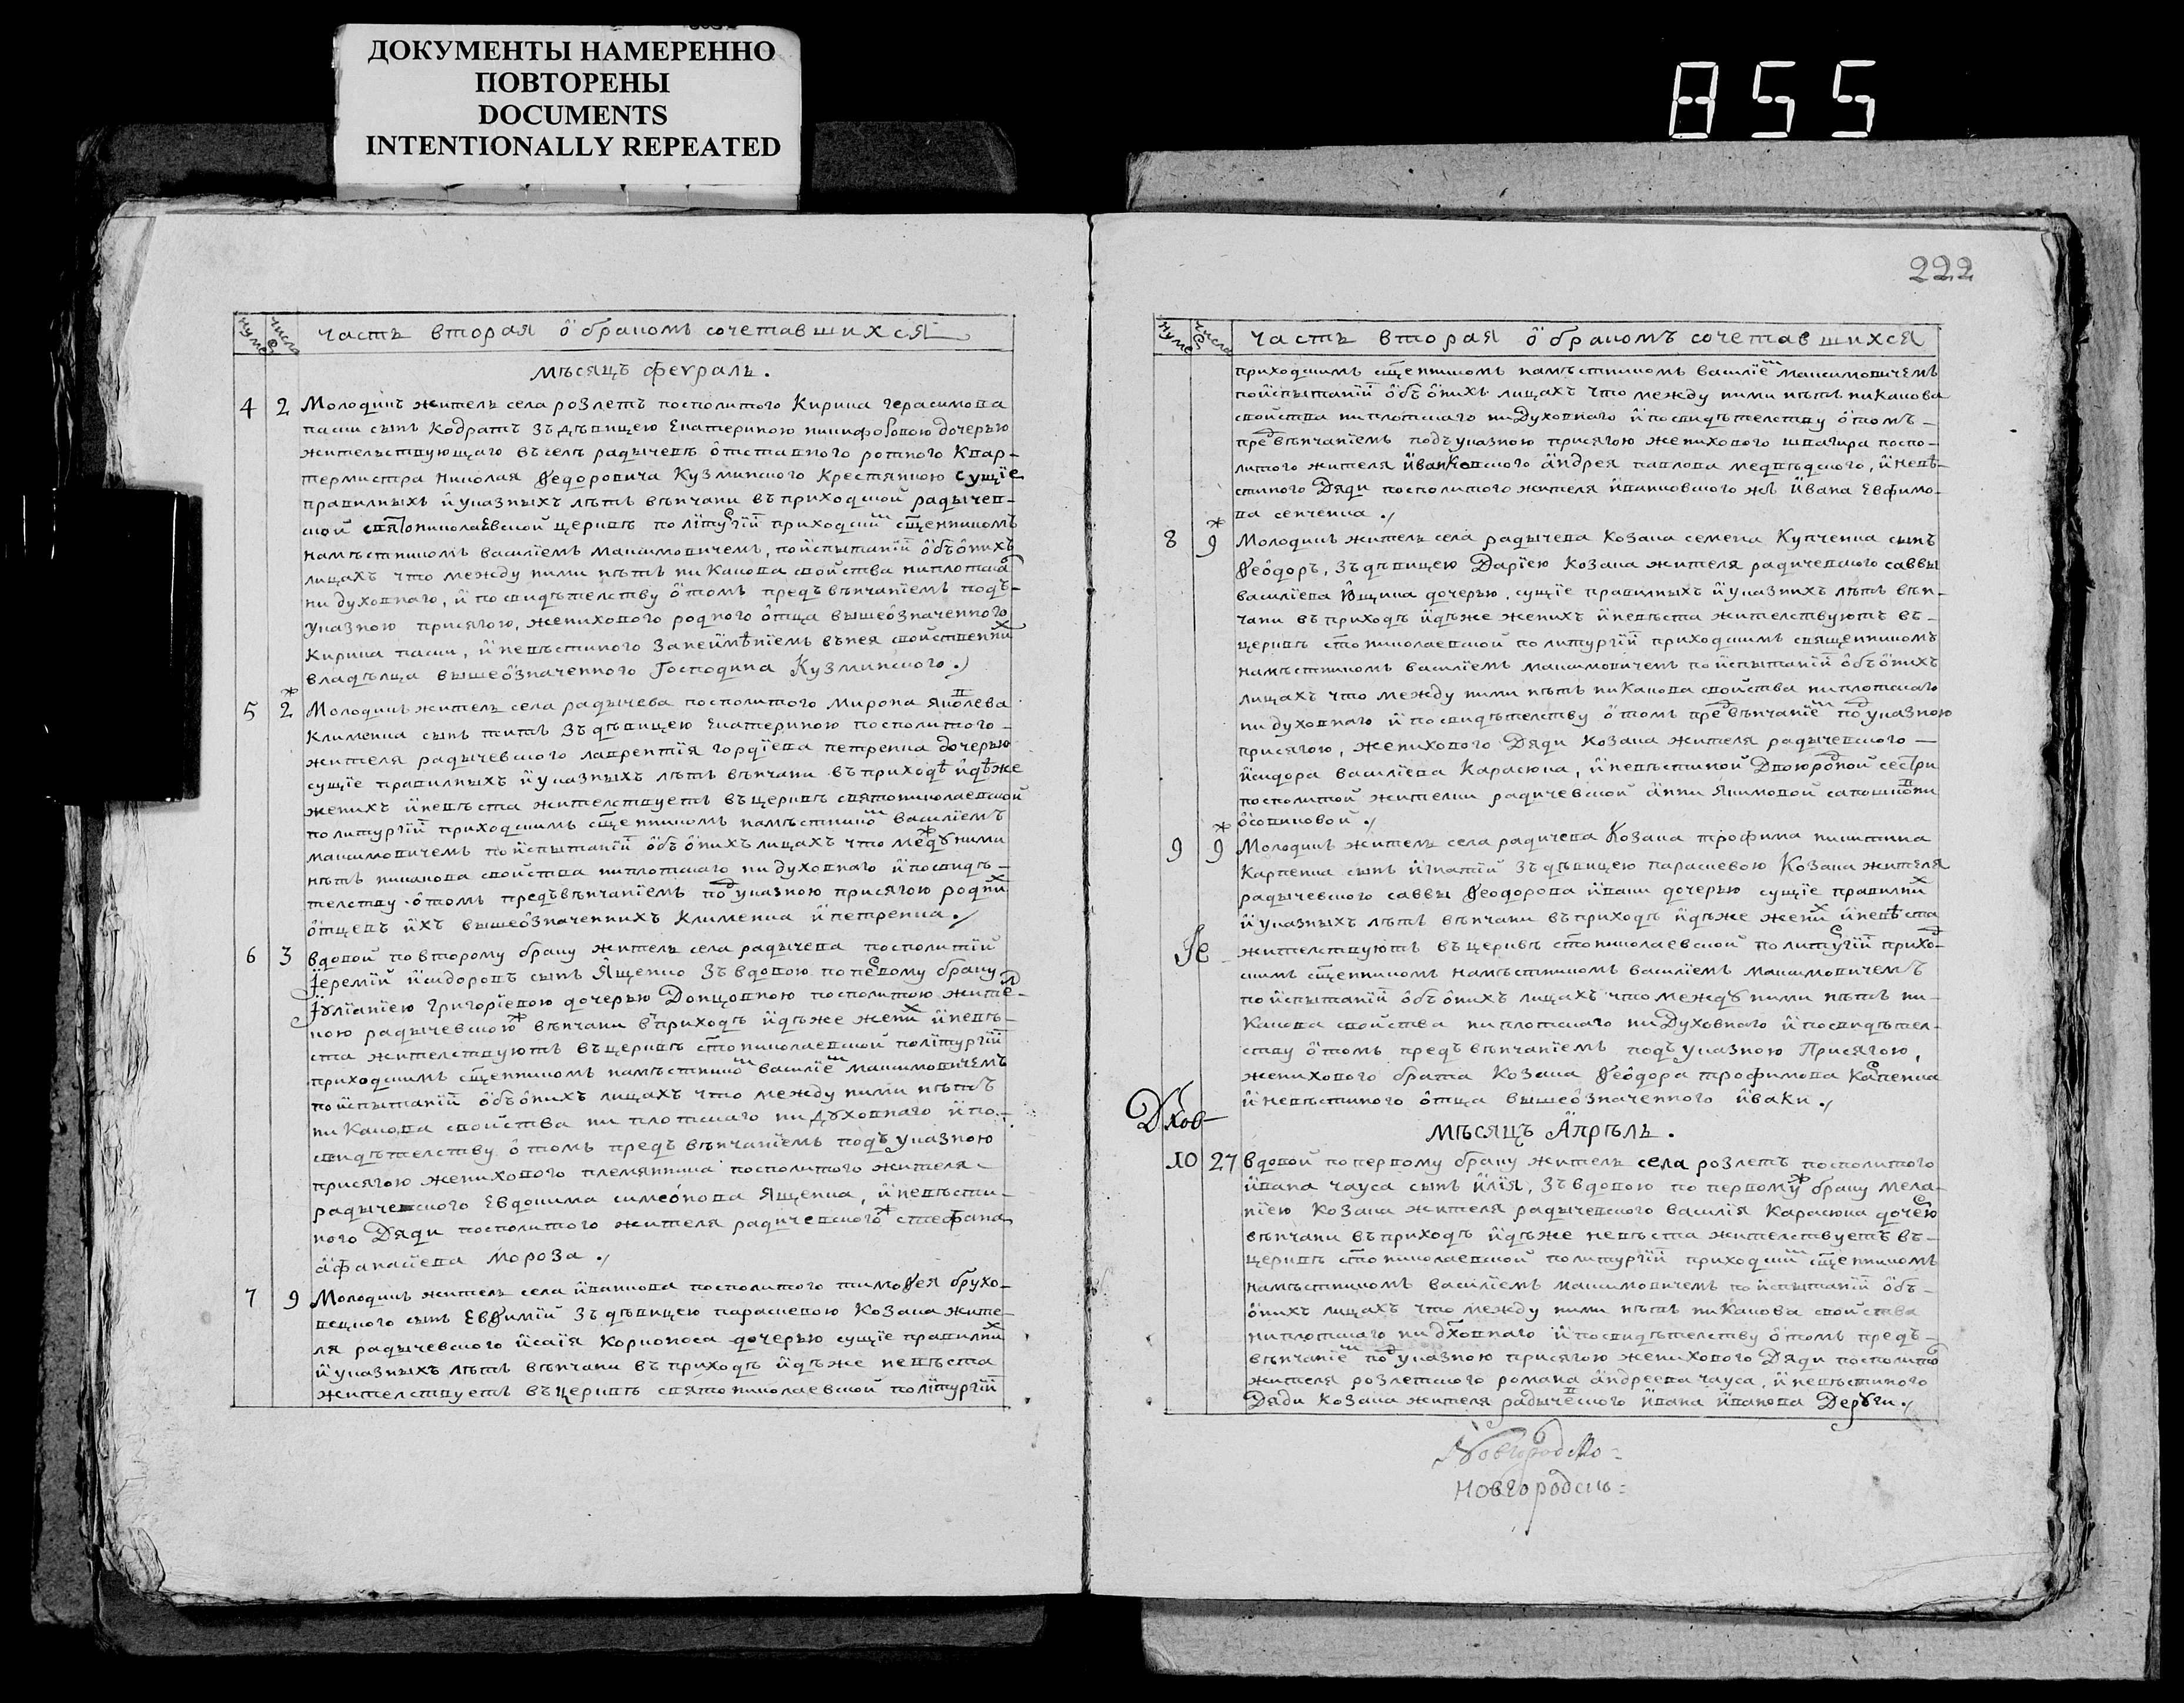 ДОКУМЕНТЫ НАМЕРЕННО
ПОВТОРЕНЫ
DOCUMENTS
INTENTIONALLY REPEATED
855
нумеръ
число
часть вторая о бракомъ сочетавшихся
мѣсяцъ февраль.
4 2 Молодикъ житель села розлетъ посполитого Кирика герасимова
паски сынъ Кодратъ зъ дѣвицею Екатериною никифоровою дочерью
жительствующаго въ селѣ радычевѣ отставного ротного Квар-
термистра Николая Ѳедоровича Кузминского Крестянкою сущіе
правилныхъ и указныхъ лѣтъ вѣнчани въ приходской радычев-
ской святониколаевской церквѣ по літургіи приходским сщенникомъ
намѣстникомъ василіемъ максимовичемъ, по испытаніи объ онихъ
лицахъ что между ними нѣтъ никакова свойства ни плотскаго
ни духовнаго, и по свидѣтелству отомъ предъ вѣнчаніемъ подъ-
указною присягою, женихового родного отца вышеозначенного
Кирика паски, и невѣстиного занеимѣніемъ въ нея свойственних
владѣлца вышеозначенного Господина Кузминского.
5 2 Молодикъ житель села радычева посполитого мирона яковлева
Клименка сынъ титъ зъ дѣвицею Екатериною посполитого-
жителя радычевского лаврентія гордіева петренка дочерью
сущіе правилныхъ и указныхъ лѣтъ вѣнчани въ приходѣ идѣже
женихъ и невѣста жителствуетъ въ церквѣ святониколаевской
по литургіи приходскимъ сщенникомъ намѣстником василіемъ
максимовичемъ по испытаніи объ онихъ лицахъ что между ними
нѣтъ никакова свойства ни плотскаго ни духовнаго и по свидѣ-
телству отомъ предъ вѣнчаніемъ под указною присягою родних
отцевъ ихъ вышеозначеннихъ Клименка и петренка.
6 3 вдовой по второму браку житель села радычева посполитій
Іеремій исидоровъ сынъ Ященко зъ вдовою по первому браку
Іуліаніею григоріевою дочерью Донцовною посполитою жител-
кою радычевскою вѣнчани въ приходѣ идѣже жених и невѣ-
ста жителствуютъ въ церквѣ стониколаевской по літургіи
приходскимъ сщенникомъ намѣстником василіем максимовичемъ
по испытаніи объ онихъ лицахъ что между ними нѣтъ
никакова свойства ни плотскаго ни духовнаго и по-
свидѣтелству отомъ предъ вѣнчаніемъ подъ указною
присягою женихового племянника посполитого жителя
радычевского Евдокима симеонова Ященка, и невѣсти-
ного Дяди посполитого жителя радичевского стефана
афанасіева мороза.
7 9 Молодикъ житель села иванкова посполитого тимоѳея брухо-
вецкого сынъ Евѳимій зъ дѣвицею параскевою Козака жите-
ля радычевского исаія Корноноса дочерью сущіе правилних
и указныхъ лѣтъ вѣнчани въ приходѣ идѣже невѣста
жителствуетъ въ церквѣ святониколаевской по літургіи
222
нумеръ
число
часть вторая о бракомъ сочетавшихся
приходскимъ сщенникомъ намѣстникомъ василіем максимовичемъ
по испытаніи объ онихъ лицахъ что между ними нѣтъ никакова
свойства ни плотскаго ни Духовнаго и по свидѣтелству отомъ-
пред вѣнчаніемъ подъ указною присягою женихового швагира поспо-
литого жителя иванковского андрея павлова медвѣдского, и невѣ-
стиного Дяди посполитого жителя иванковского жъ ивана Евфимо-
ва сенченка.
8 9 Молодикъ житель села радычева Козака семена Купченка сынъ
Ѳеодоръ, зъ дѣвицею Даріею Козака жителя радичевского саввы
василіева дочерью, сущіе правилныхъ и указнихъ лѣтъ вѣн-
чани въ приходѣ идѣже женихъ и невѣста жителствуютъ въ-
церквѣ стониколаевской по литургіи приходскимъ священникомъ
намѣстникомъ василіемъ максимовичемъ по испытаніи объ онихъ
лицахъ что между ними нѣтъ никакова свойства ни плотскаго
ни духовнаго и по свидѣтелству отомъ пред вѣнчаніем под указною
присягою, женихового Дяди Козака жителя радычевского-
исидора василіева Карасюка, и невѣстиной Двоюродной сестри
посполитой жителки радичевской анни Якимовой сапошковни
осовиковой.
9 9 Молодикъ житель села радичева Козака трофима никитина
Карпенка сынъ игнатій зъ дѣвицею параскевою Козака жителя
радычевского саввы Ѳеодорова иваки дочерью сущіе правилних
и указныхъ лѣтъ вѣнчани въ приходѣ идѣже жених и невѣста
жителствуютъ въ церквѣ стониколаевской по литургіи приход-
скимъ сщенникомъ намѣстникомъ василіемъ максимовичемъ
по испытаніи объ онихъ лицахъ что между ними нѣтъ ни-
какова свойства ни плотскаго ни Духовнаго и по свидѣтел-
ству отомъ предъ вѣнчаніемъ подъ указною Присягою,
женихового брата Козака Ѳеодора трофимова Карпенка
и невѣстиного отца вышеозначенного иваки.
Дхов-
мѣсяцъ Апрѣль.
10 27 вдовой по первому браку житель села розлетъ посполитого
ивана чауса сынъ илія, зъ вдовою по первому браку мела-
ніею Козака жителя радычевского василія Карасюка дочерю
вѣнчани въ приходѣ идѣже невѣста жителствуетъ въ-
церквѣ стониколаевской по литургіи приходским сщенникомъ
намѣстникомъ василіемъ максимовичемъ по испытаніи объ-
онихъ лицахъ что между ними нѣтъ никакова свойства
ни плотскаго ни дховнаго и по свидѣтелству отомъ предъ-
вѣнчаніем под указною присягою женихового Дяди посполитого
жителя розлетского романа андреева чауса, и невѣстиного
Дяди Козака жителя радычевского ивана иванова Деруги.
Новгородско-
Новгородско: